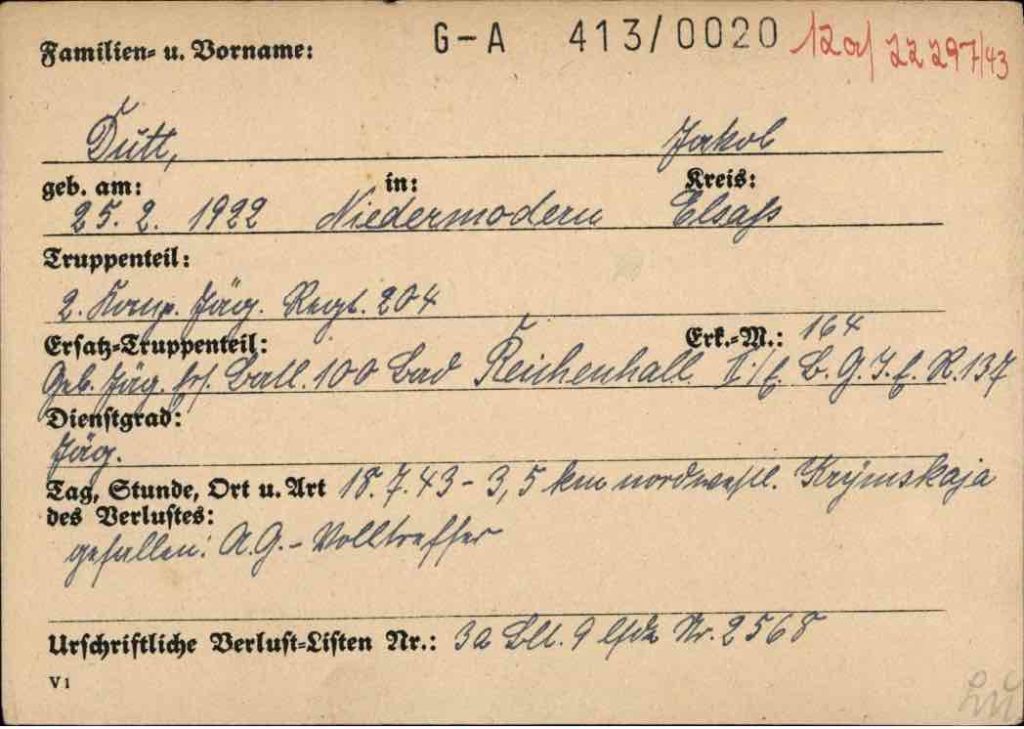 Familien- u. Vorname: G-A 413/0020 22297/43
Dutt, Jakob
geb. am: in: Kreis:
25. 2. 1922 Niedermodern Elsaß
Truppenteil:
2. Komp. Jäg. Regt. 204
Ersatz-Truppenteil: Erk.-M.: 164
Geb. Jäg. Ers. Batl. 100 Bad Reichenhall
Dienstgrad:
Jäg.
Tag, Stunde, Ort u. Art 18. 7. 43 - 3,5 km nordwestl. Krymskaja
des Verlustes:
gefallen: A.G.-Volltreffer
Urschriftliche Verlust-Listen Nr.: 3a Bl. 9 lfde Nr. 2568
V1